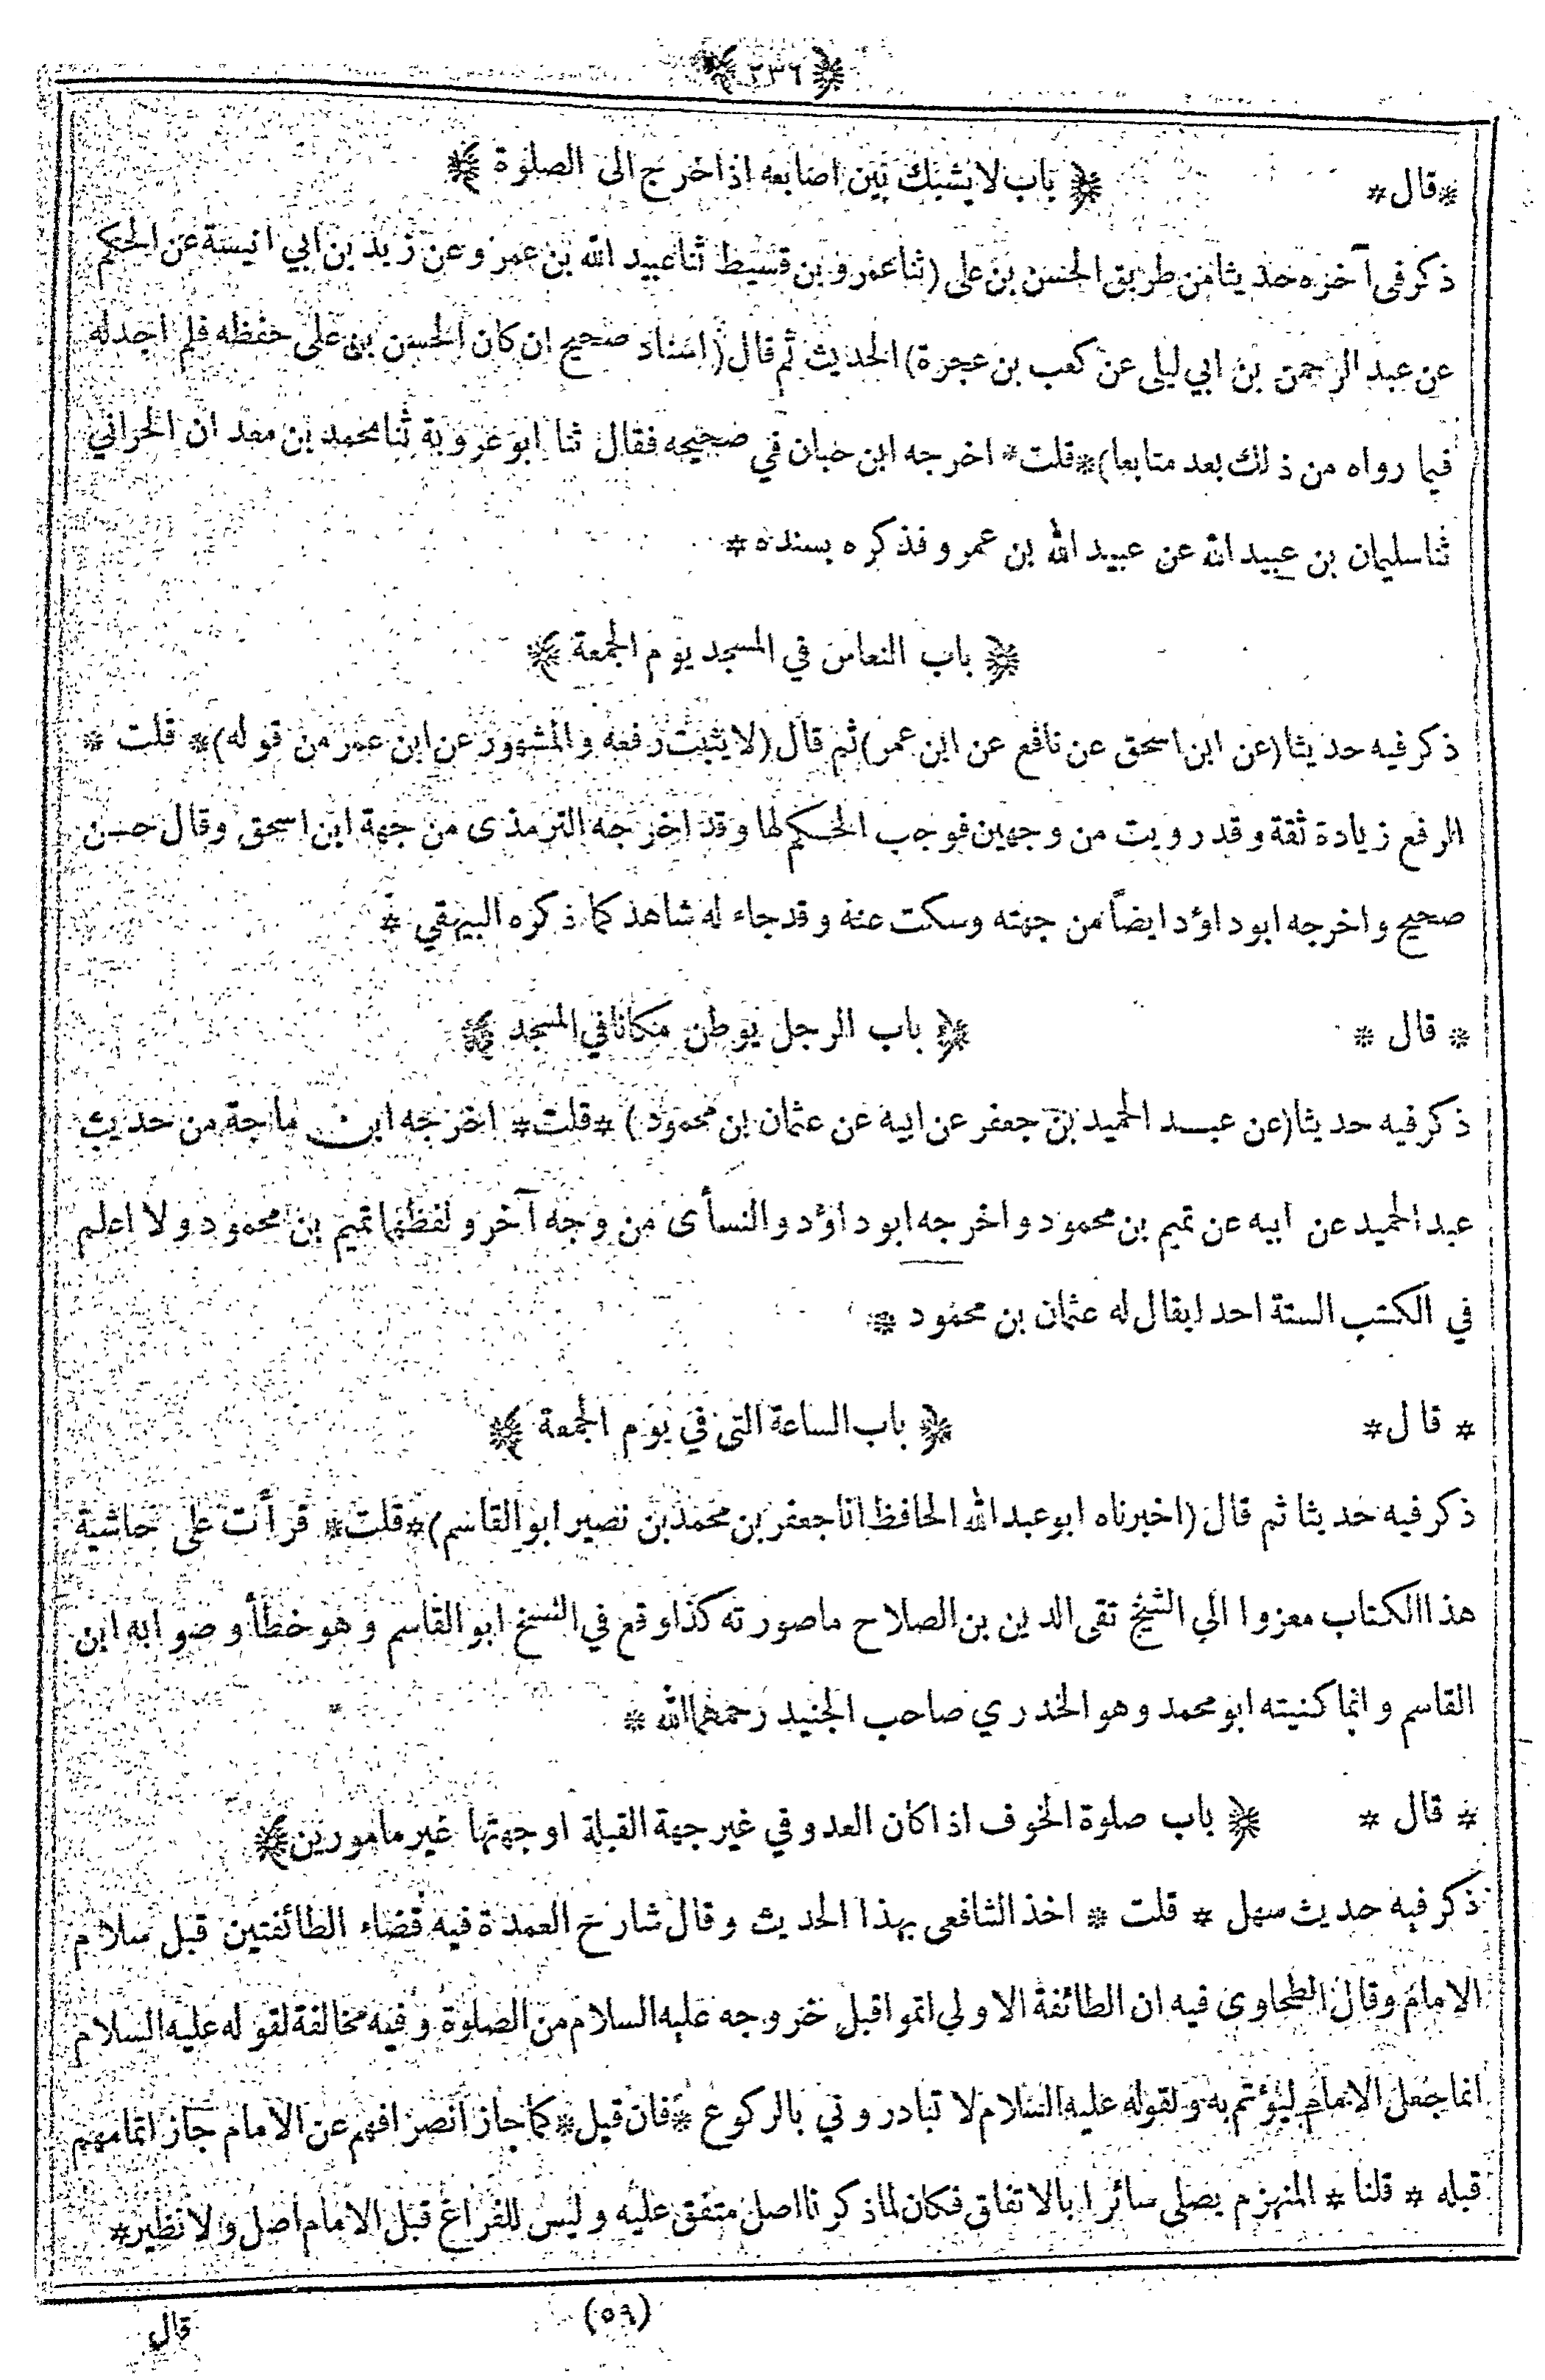 ﴿ ٢٣٦ ﴾
*قال* ﴿ باب لا يشبك بين اصابعه اذا خرج الى الصلوة ﴾
ذكر فى آخره حديثا من طريق الحسن بن على (ثنا عمرو بن قسيط ثنا عبيد الله بن عمرو عن زيد بن ابي انيسة عن الحكم
عن عبد الرحمن بن ابي ليلى عن كعب بن عجرة) الحديث ثم قال (اسناد صحيح ان كان الحسن بن على حفظه فلم اجد له
فيما رواه من ذلك بعد متابعا) *قلت* اخرجه ابن حبان في صحيحه فقال ثنا ابو عروبة ثنا محمد بن معدان الحراني
ثنا سليمان بن عبيد الله عن عبيد الله بن عمرو فذكره بسنده *
﴿ باب النعاس في المسجد يوم الجمعة ﴾
ذكر فيه حديثا (عن ابن اسحق عن نافع عن ابن عمر) ثم قال (لا يثبت رفعه والمشهور عن ابن عمر من قوله) * قلت *
الرفع زيادة ثقة وقد رويت من وجهين فوجب الحكم لها وقد اخرجه الترمذى من جهة ابن اسحق وقال حسن
صحيح واخرجه ابو داؤد ايضاً من جهته وسكت عنه وقد جاء له شاهد كما ذكره البيهقي *
* قال * ﴿ باب الرجل يوطن مكانا في المسجد ﴾
ذكر فيه حديثا (عن عبد الحميد بن جعفر عن ابيه عن عثمان بن محمود) *قلت* اخرجه ابن ماجة من حديث
عبد الحميد عن ابيه عن تميم بن محمود واخرجه ابو داؤد والنسأى من وجه آخر ولفظهما تميم بن محمود ولا اعلم
في الكتب الستة احدا يقال له عثمان بن محمود *
* قال * ﴿ باب الساعة التى في يوم الجمعة ﴾
ذكر فيه حديثا ثم قال (اخبرناه ابو عبد الله الحافظ انا جعفر بن محمد بن نصير ابو القاسم) *قلت* قرأت على حاشية
هذا الكتاب معزوا الي الشيخ تقى الدين بن الصلاح ما صورته كذا وقع في النسخ ابو القاسم وهو خطأ وصوابه ابن
القاسم وانما كنيته ابو محمد وهو الخدري صاحب الجنيد رحمهما الله *
* قال * ﴿ باب صلوة الخوف اذا كان العدو في غير جهة القبلة او جهتها غير مامورين ﴾
ذكر فيه حديث سهل * قلت * اخذ الشافعى بهذا الحديث وقال شارح العمدة فيه قضاء الطائفتين قبل سلام
الامام وقال الطحاوى فيه ان الطائفة الاولي اتموا قبل خروجه عليه السلام من الصلوة وفيه مخالفة لقوله عليه السلام
انما جعل الامام ليؤتم به ولقوله عليه السلام لا تبادروني بالركوع *فان قيل* كما جاز انصرافهم عن الامام جاز اتمامهم
قبله * قلنا * المنهزم يصلى سائرا بالاتفاق فكان لما ذكرنا اصل متفق عليه وليس للفراغ قبل الامام اصل ولا نظير *
(٥٩)
قال